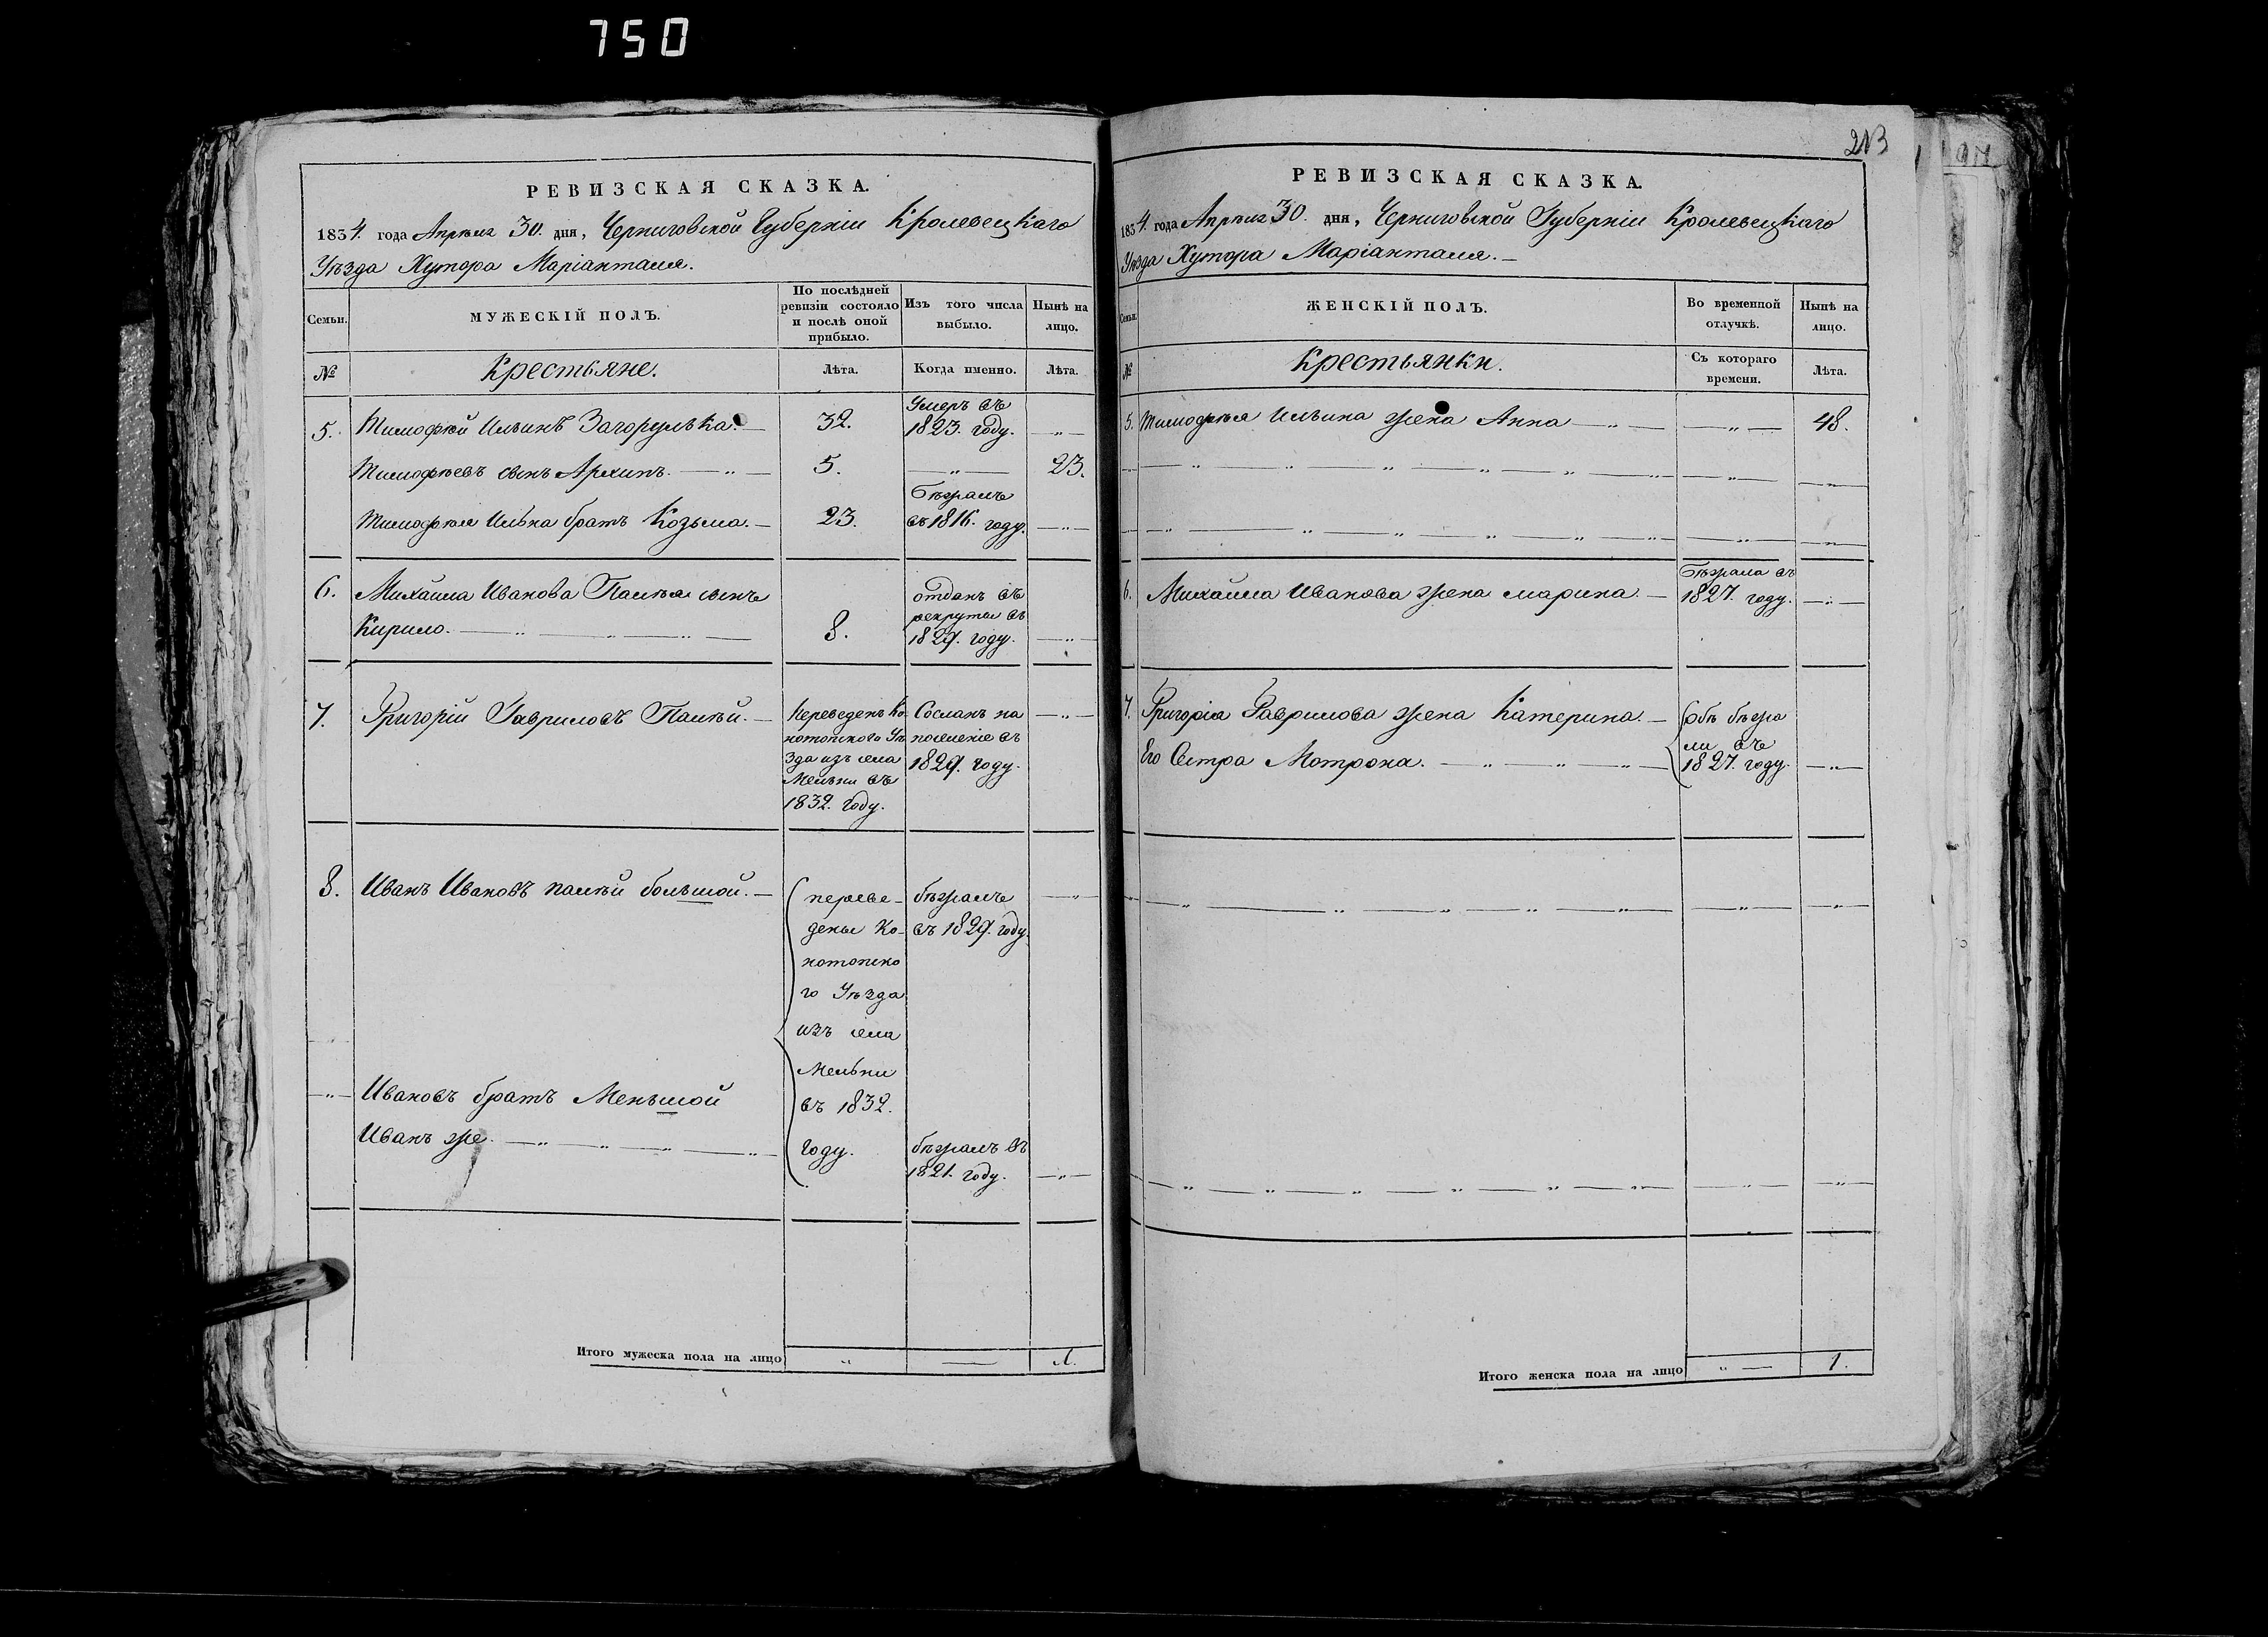 750
РЕВИЗСКАЯ СКАЗКА.
1834. года Апрѣля 30. дня, Черниговской Губерніи Кролевецкаго
Уѣзда Хутора Маріанталя.
Семьи.
МУЖЕСКІЙ ПОЛЪ.
По послѣдней
ревизіи состояло
и послѣ оной
прибыло.
Изъ того числа
выбыло.
Нынѣ на
лицо.
№
Крестьяне.
Лѣта.
Когда именно.
Лѣта.
5. Тимофей Ильинъ Загорулька.
32.
Умеръ въ
1823. году.
Тимофѣевъ сынъ Архипъ.
5.
23.
Тимофѣя Ильина братъ Козьма.
23.
Бѣжалъ
въ 1816. году.
6. Михайла Иванова Палѣя сынъ
Кирило.
8.
отданъ въ
рекруты въ
1829. году.
7. Григорій Гавриловъ Палѣй.
Переведенъ Ко-
нотопского Уѣ
зда изъ села
Мельни въ
1832. году.
Сосланъ на
поселеніе въ
1829. году.
8. Иванъ Ивановъ палѣй большой.
переве-
дены Ко-
нотопско
го Уѣзда
изъ села
Мельни
въ 1832.
году.
бѣжалъ
въ 1829. году.
Ивановъ братъ Меньшой
Иванъ же.
бѣжалъ въ
1821. году.
Итого мужеска пола на лицо
1.
213
РЕВИЗСКАЯ СКАЗКА.
1834. года Апрѣля 30. дня, Черниговской Губерніи Кролевецкаго
Уѣзда Хутора Маріанталя.
Семьи.
ЖЕНСКІЙ ПОЛЪ.
Во временной
отлучкѣ.
Нынѣ на
лицо.
№
Крестьянки.
Съ котораго
времени.
Лѣта.
5. Тимофѣя Ильина жена Анна
48.
6. Михайла Иванова жена марина.
Бѣжала въ
1827. году.
7. Григорія Гаврилова жена Катерина.
Его Сестра Мотрона.
обѣ бѣжа
ли въ
1827. году.
Итого женска пола на лицо
1.